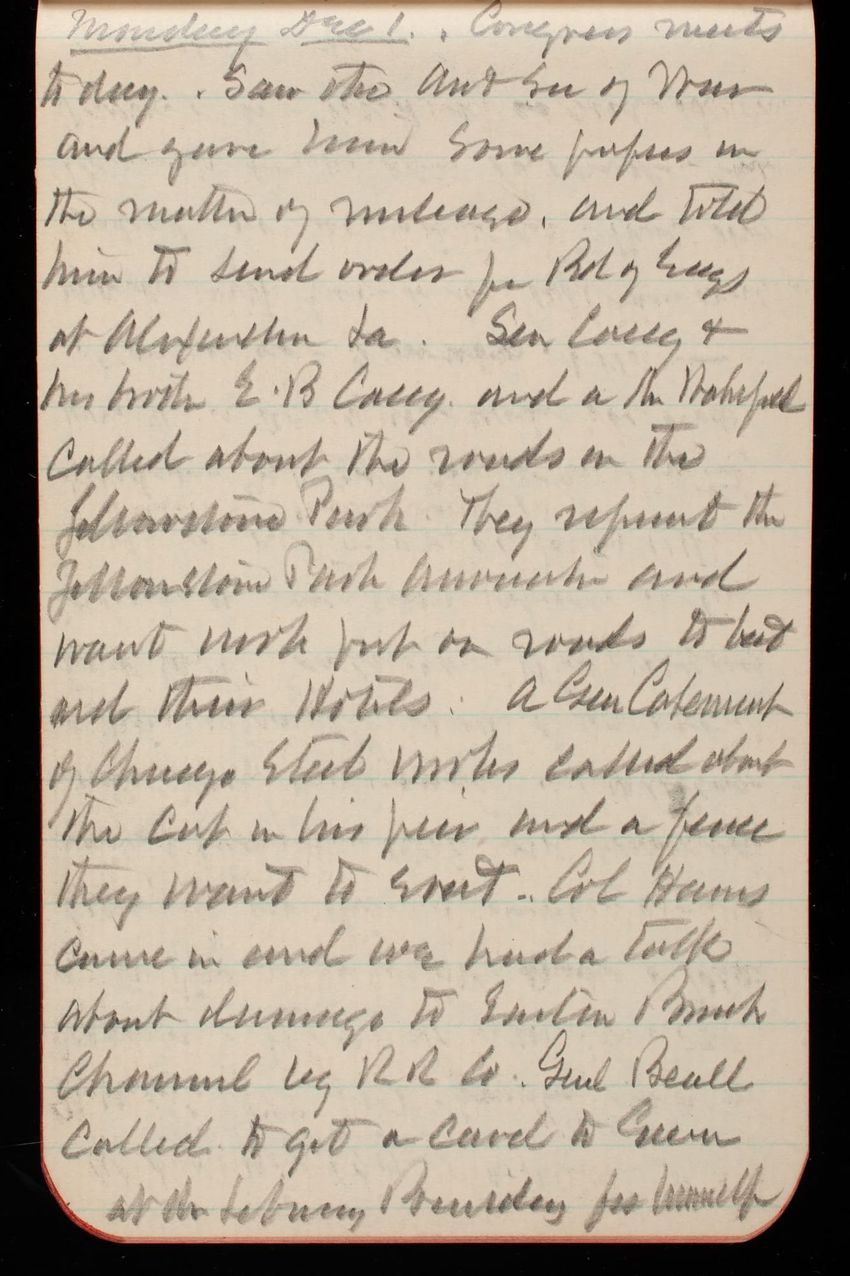 Monday Dec 1. . Congress meets
today. . Saw the Asst Sec of War
and gave him some papers in
the matter of mileage, and told
him to send order for Bd of Engs
at Alexandria La. Sen Casey &
his broth E. B Casey and a Mr
called about the roads in the
Yellowstone Park They represent the
Yellowstone Park Association and
want work put on roads to
and their Hotels. A Gen
of Chicago Steel Works called about
the cut in his pier and a fence
they want to erect. Col Hains
came in and we had a talk
about damage to Eastern Branch
Channel by R R Co. Genl Beall
called to get a card to Green
at the Library Building for himself